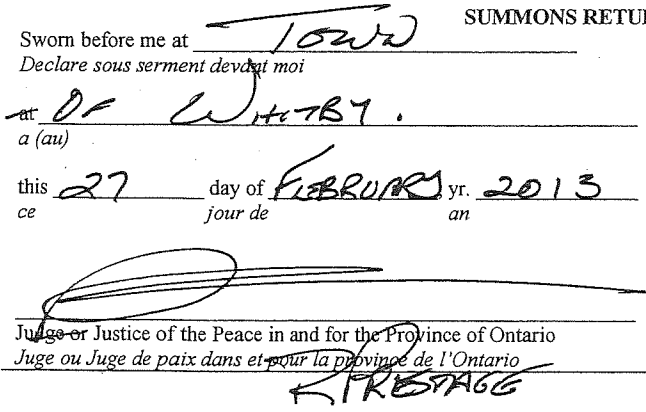 SUMMONS RETU
Sworn before me at Town
Declare sous serment devant moi
at OF WHITBY.
a (au)
this 27 day of FEBRUARY yr. 2013
ce jour de an
Judge or Justice of the Peace in and for the Province of Ontario
Juge ou Juge de paix dans et pour la province de l'Ontario
R PRESTAGE